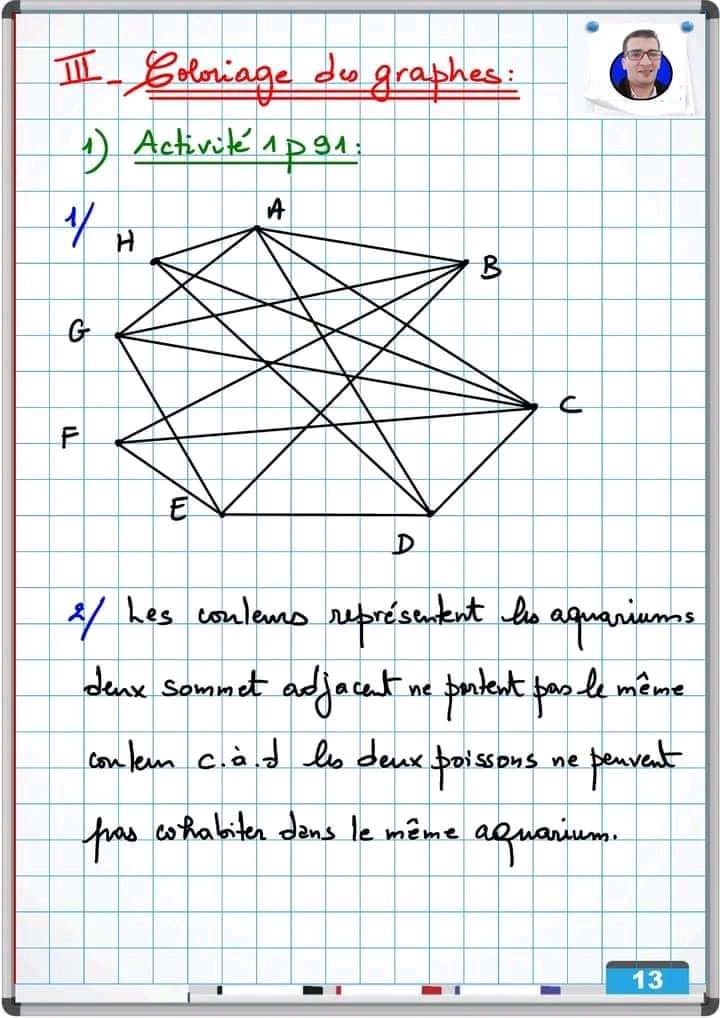 III - Coloriage des graphes:
1) Activité 1 p 91:
1/
A
H
B
G
C
F
E
D
2/ Les couleurs représentent les aquariums
deux sommet adjacent ne portent pas le même
couleur c.à.d les deux poissons ne peuvent
pas cohabiter dans le même aquarium.
13